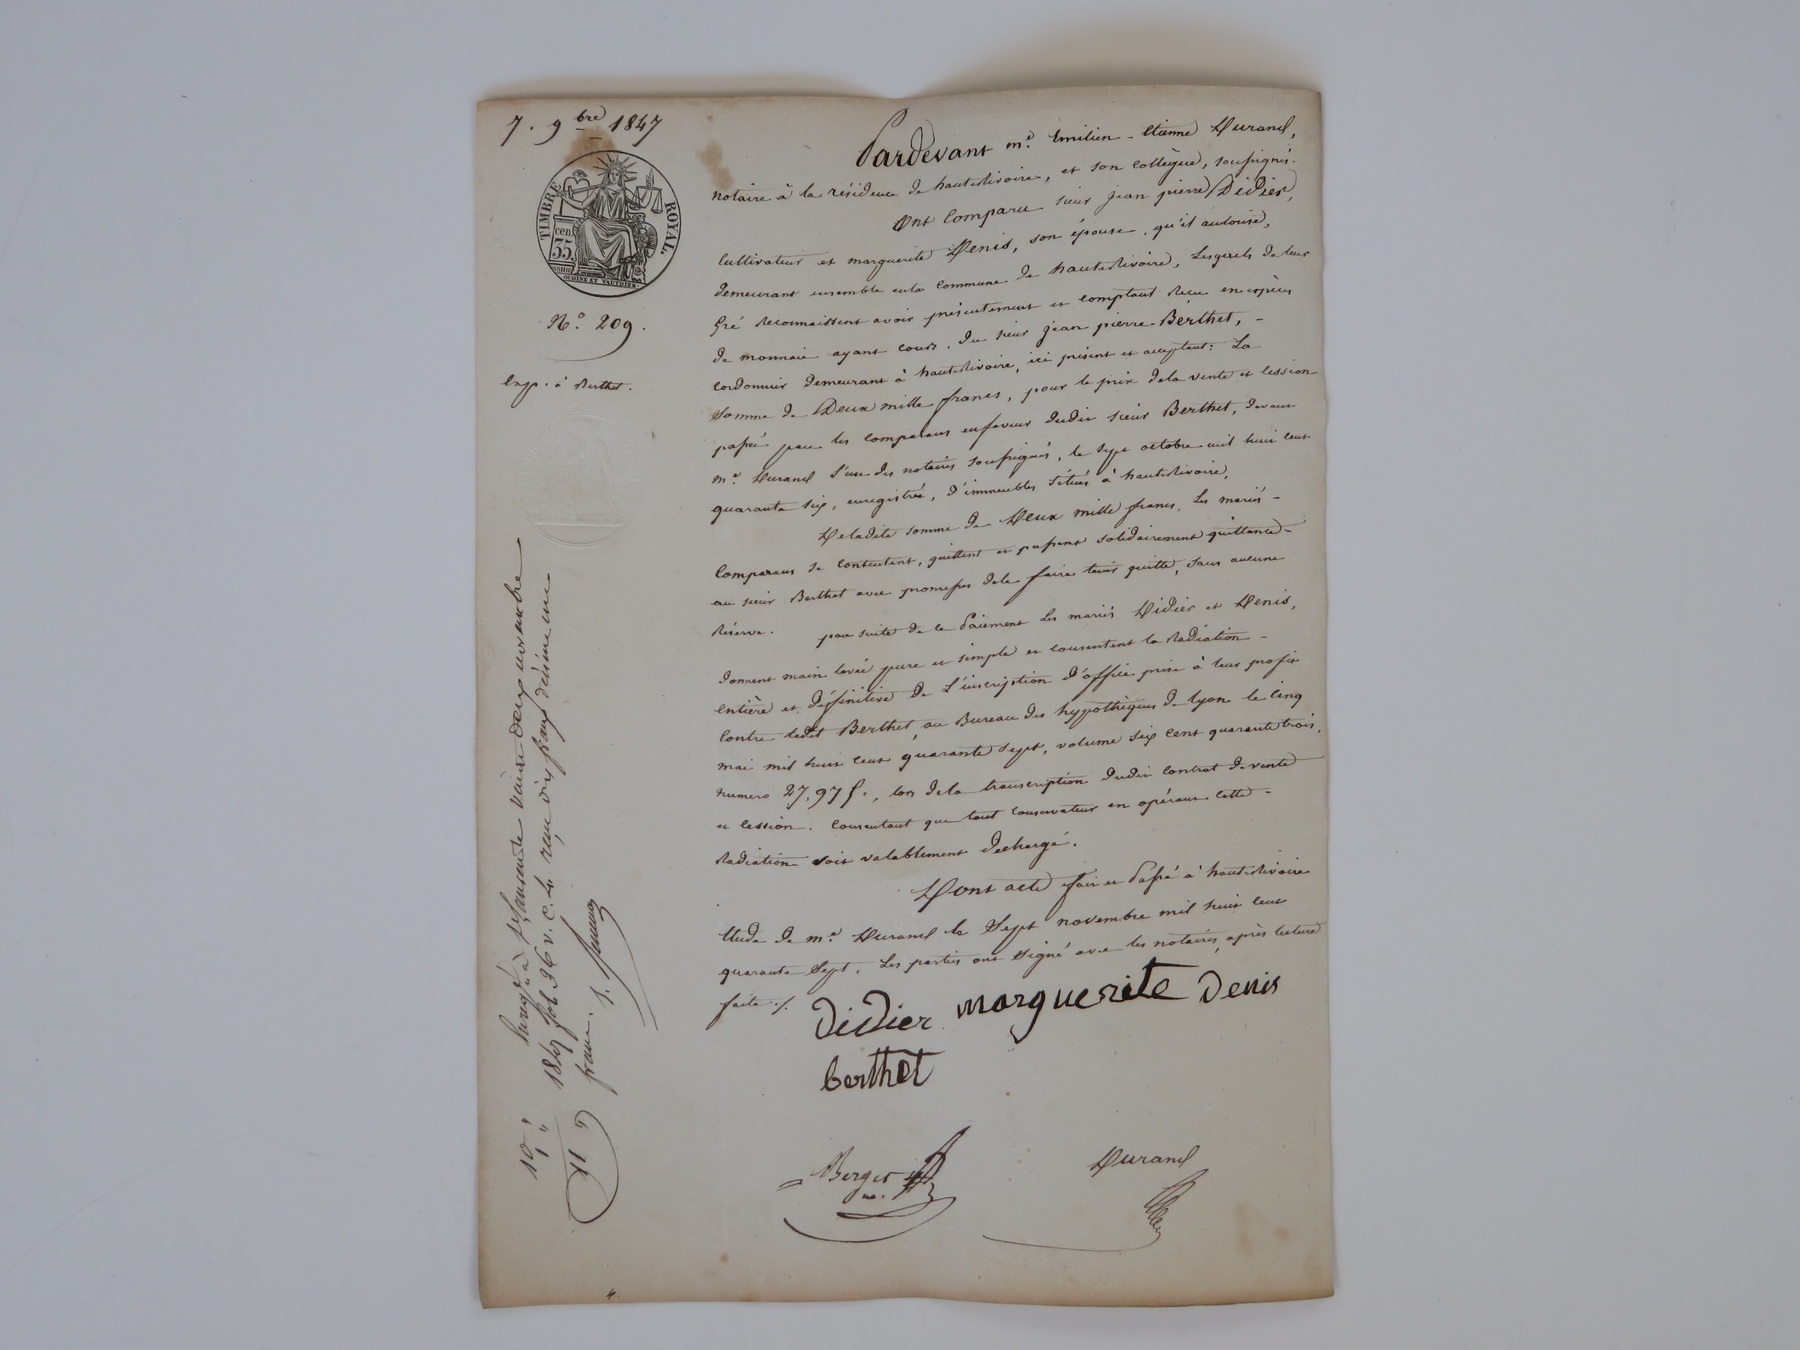 7. 9bre 1847
TIMBRE ROYAL.
cen. 35
N.o 209.
Exp. à Berthet.
Pardevant m.e Emilien-Etienne Durand,
notaire à la résidence de hauterivoire, et son collègue, soussignés.
Ont comparu sieur jean pierre Didier,
cultivateur et marguerite Denis, son épouse, qu'il autorise,
demeurant ensemble enla commune de hauterivoire, Lesquels de leur
gré reconnaissent avoir présentement et comptant Reçu en espèces
de monnaie ayant cours, du sieur jean pierre Berthet, -
cordonnier demeurant à hauterivoire, ici présent et acceptant: La
somme de Deux mille francs, pour le prix dela vente et cession
passée par les comparans enfaveur dudit sieur Berthet, devant
m.e Durand l'un des notaires soussignés, le sept octobre mil huit cent
quarante six, enregistrée, d'immeubles situés à hauterivoire,
De ladite somme de Deux mille francs, Les mariés -
Comparans se contentent, quittent et passent solidairement quittance -
au sieur Berthet avec promesses dele faire tenir quitte, sans aucune
Réserve. par suite de ce Paiement Les mariés Didier et Denis,
donnent main levée pure et simple et consentent la Radiation -
entière et définitive de L'inscription d'office prise à leur profit
Contre ledit Berthet, au Bureau des hypothèques de lyon le cinq
mai mil huit cent quarante sept, volume six cent quarante trois,
numero 27,97 , lors dela transcription dudit contrat de vente
et cession. Consentant que tout conservateur en opérant cette -
Radiation soit valablement déchargé.
Dont acte fait et Passé à hauterivoire
Etude de m.e Durand le Sept novembre mil huit cent
quarante sept, Les parties ont signé avec les notaires, après lecture
faite ./.
Didier marguerite Denis
berthet
Berger Durand
no.
Enreg.é à St Laurent de vingt deux novembre
1847 fol. 36 v. c. 4 reçu dix francs décime un
franc.
10 "
1 "
11 "
4.